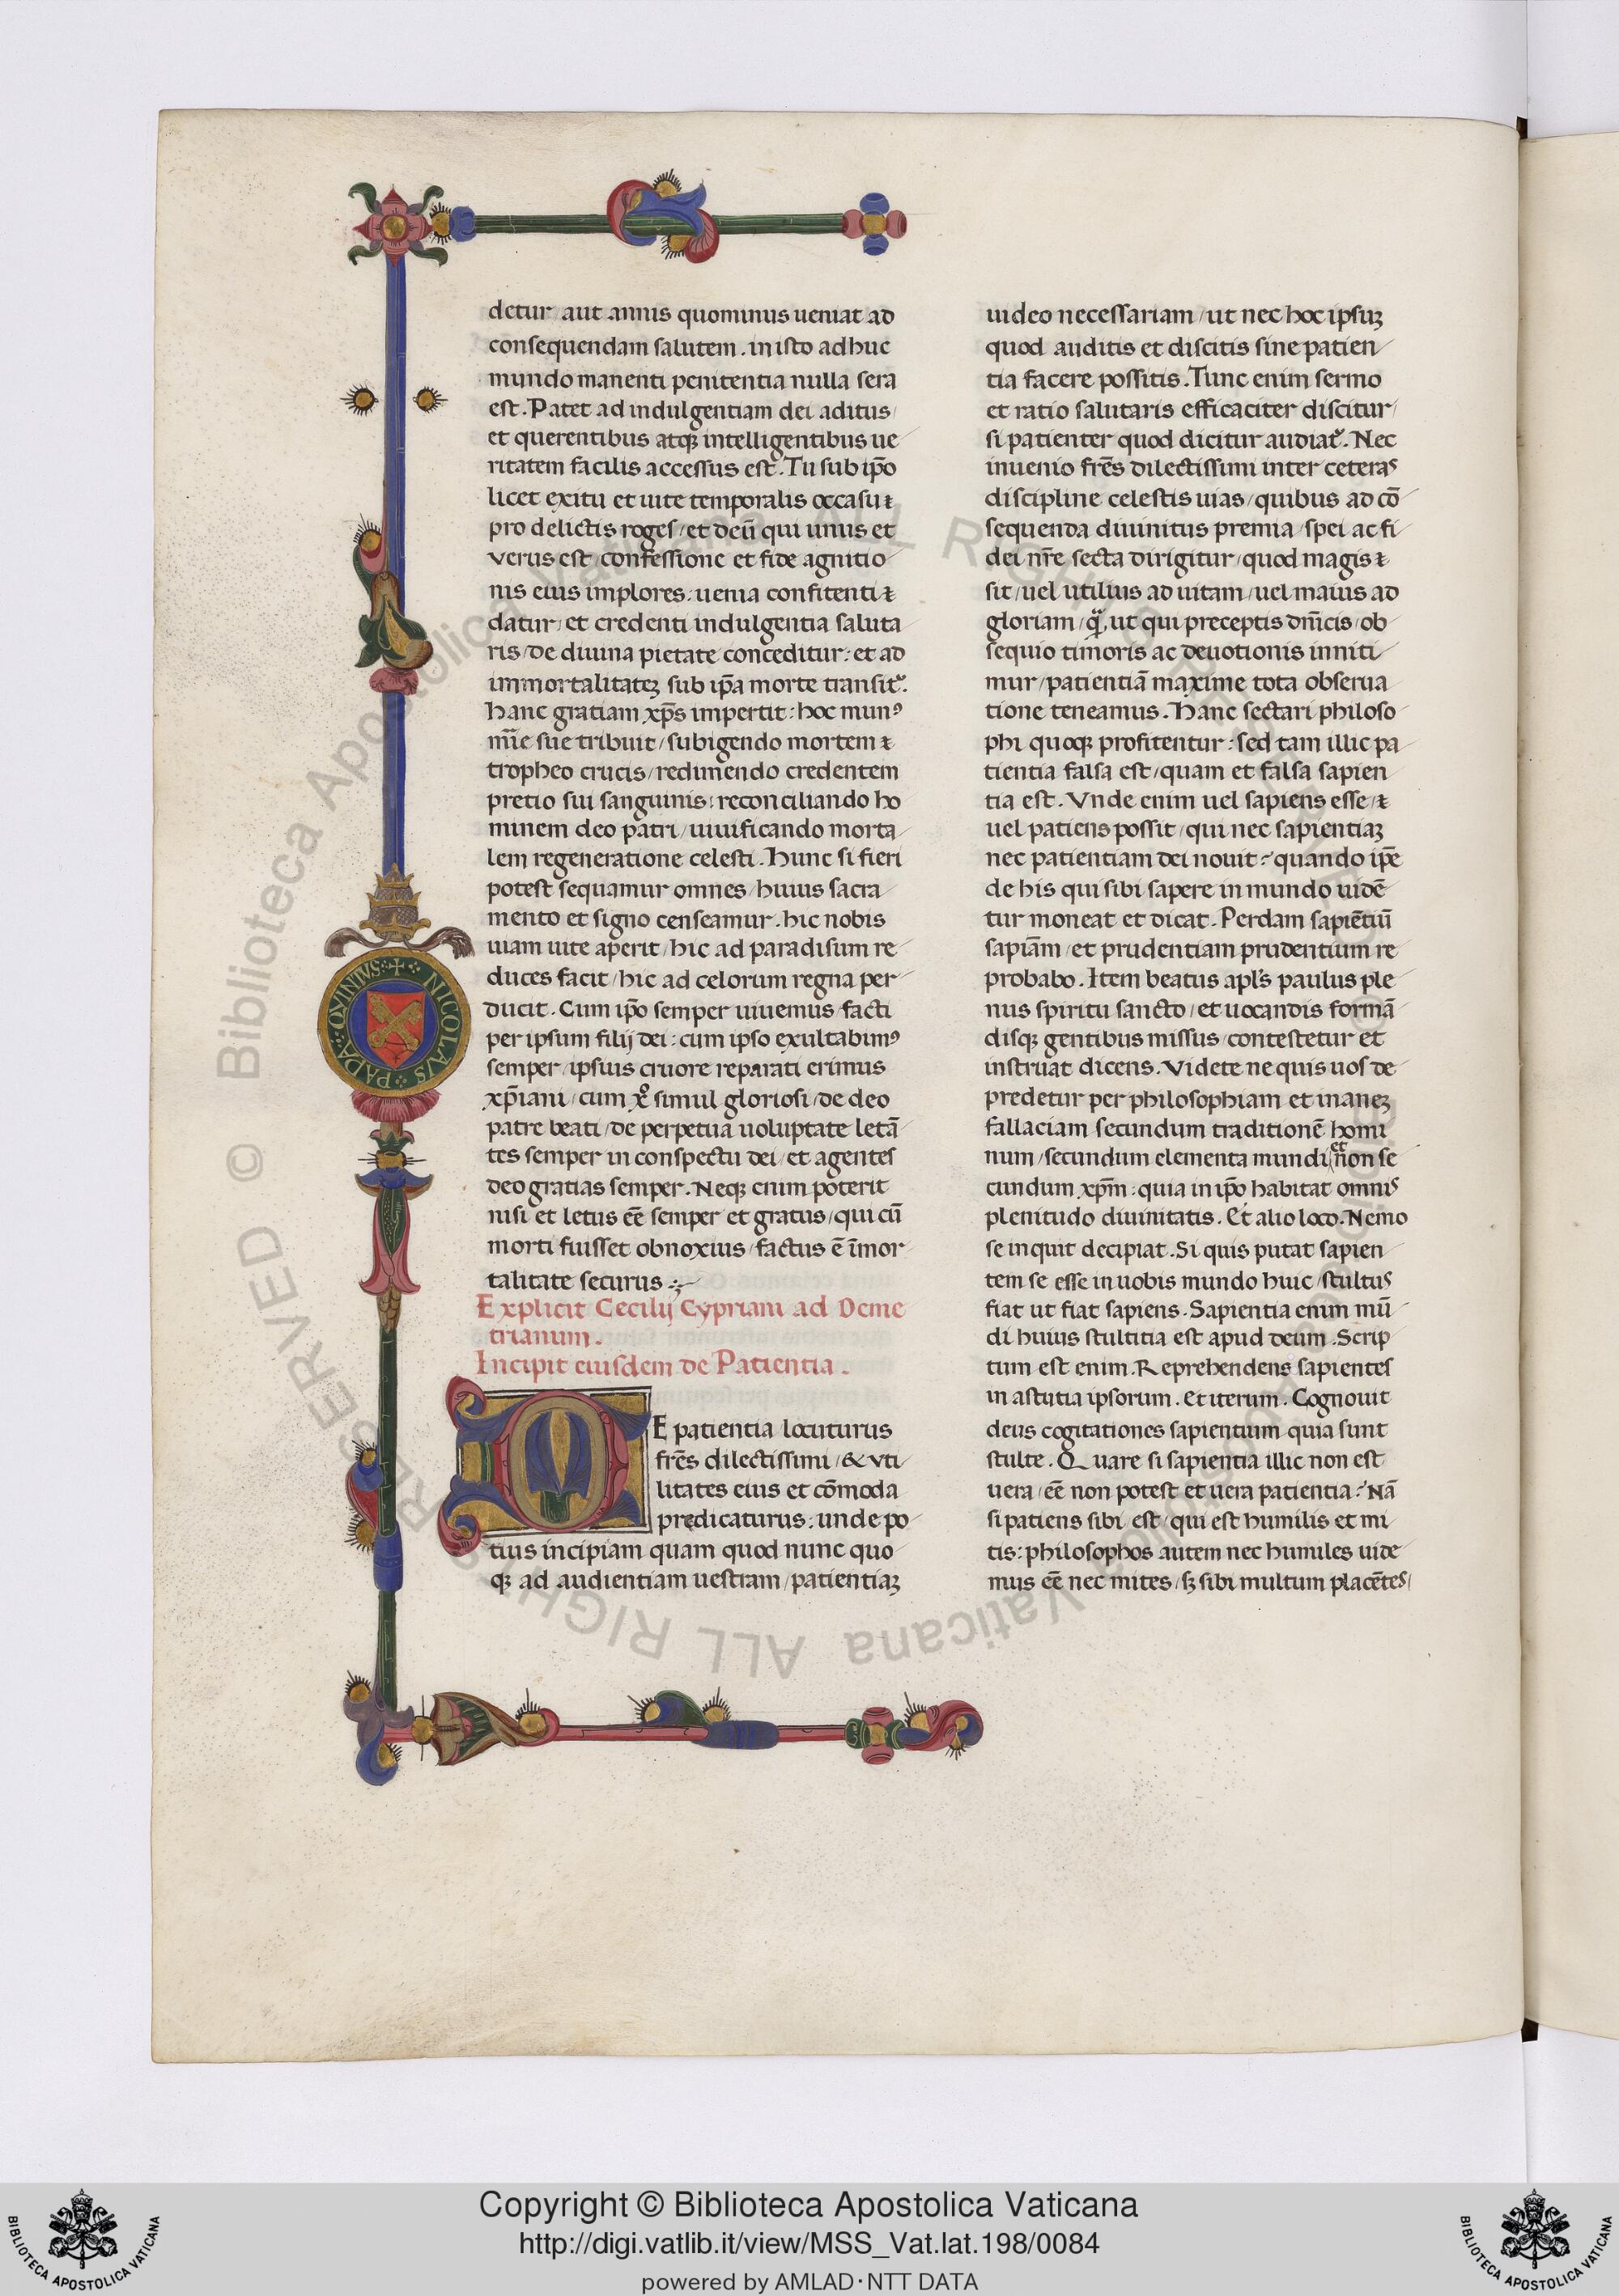 detur aut annis quominus ueniat ad
consequendam salutem. in isto adhuc
mundo manenti penitentia nulla sera
est. Patet ad indulgentiam dei aditus/
et querentibus atqꝫ intelligentibus ue
ritatem facilis accessus est. Tu sub ip̄o
licet exitu et uite temporalis occasu ⁊
pro delictis roges/et deū qui unus et
verus est confessione et fide agnitio
nis eius implores: uenia confitenti ⁊
datur/et credenti indulgentia saluta
ris/de diuina pietate conceditur: et ad
immortalitateꝫ sub ip̄a morte transit᷑.
hanc gratiam xp̄s impertit: hoc munꝰ
mīe sue tribuit/subigendo mortem ⁊
tropheo crucis/redimendo credentem
pretio sui sanguinis: reconciliando ho
minem deo patri/uiuificando morta
lem regeneratione celesti. Hunc si fieri
potest sequamur omnes/huius sacra
mento et signo censeamur. hic nobis
uiam uite aperit/hic ad paradisum re
duces facit/hic ad celorum regna per
ducit. Cum ip̄o semper uiuemus/facti
per ipsum filij dei: cum ipso exultabimꝰ
semper/ipsius cruore reparati erimus
xp̄iani/cum xͦ simul gloriosi/de deo
patre beati/de perpetua uoluptate letā
tes semper in conspectu dei/et agentes
deo gratias semper. Neqꝫ enim poterit
nisi et letus eē semper et gratus/qui cū
morti fuisset obnoxius/factus ē īmor
talitate securus
Explicit Cecilij Cypriani ad Deme
trianum.
Incipit eiusdem de Patientia.
DE patientia locuturus
fr̄es dilectissimi/& uti
litates eius et cōmoda
predicaturus: unde po
tius incipiam quam quod nunc quo
qꝫ ad audientiam uestram/patientiaꝫ
uideo necessariam/ut nec hoc ipsuꝫ
quod auditis et discitis sine patien
tia facere possitis. Tunc enim sermo
et ratio salutaris efficaciter discitur/
si patienter quod dicitur audiat᷑. Nec
inuenio fr̄es dilectissimi inter ceteras
discipline celestis uias/quibus ad cō
sequenda diuinitus premia/spei ac fi
dei nr̄e secta dirigitur/quod magis ⁊
sit/uel utilius ad uitam/uel maius ad
gloriam/ꝙᷓ, ut qui preceptis dn̄icis/ob
sequio timoris ac deuotionis inniti
mur/patientiā maxime tota obserua
tione teneamus. Hanc sectari philoso
phi quoqꝫ profitentur: sed tam illic pa
tientia falsa est/quam et falsa sapien
tia est. Vnde enim uel sapiens esse/⁊
uel patiens possit/qui nec sapientiaꝫ
nec patientiam dei nouit? quando ip̄e
de his qui sibi sapere in mundo uidē
tur moneat et dicat. Perdam sapiētiū
sapiām/et prudentiam prudentium re
probabo. Item beatus apl̄s paulus ple
nus spiritu sancto/et uocandis formā
disqꝫ gentibus missus/contestetur et
instruat dicens. Videte ne quis uos de
predetur per philosophiam et inaneꝫ
fallaciam secundum traditionē homi
num/secundum elementa mundi et non se
cundum xp̄m: quia in ip̄o habitat omnis
plenitudo diuinitatis. Et alio loco. Nemo
se inquit decipiat. Si quis putat sapien
tem se esse in uobis mundo huic/stultus
fiat ut fiat sapiens. Sapientia enim mū
di huius stultitia est apud deum. Scrip
tum est enim. Reprehendens sapientes
in astutia ipsorum. Et iterum. Cognouit
deus cogitationes sapientium quia sunt
stulte. Quare si sapientia illic non est
uera/eē non potest et uera patientia? Nā
si patiens sibi est/qui est humilis et mi
tis: philosophos autem nec humiles uide
mus eē nec mites/sꝫ sibi multum placētes/
NICOLAUS · PAPA · QVINTVS
© Biblioteca Apostolica Vaticana ALL RIGHTS RESERVED
© Biblioteca Apostolica Vaticana ALL RIGHTS RESERVED
Copyright © Biblioteca Apostolica Vaticana
http://digi.vatlib.it/view/MSS_Vat.lat.198/0084
powered by AMLAD·NTT DATA
BIBLIOTECA APOSTOLICA VATICANA
BIBLIOTECA APOSTOLICA VATICANA